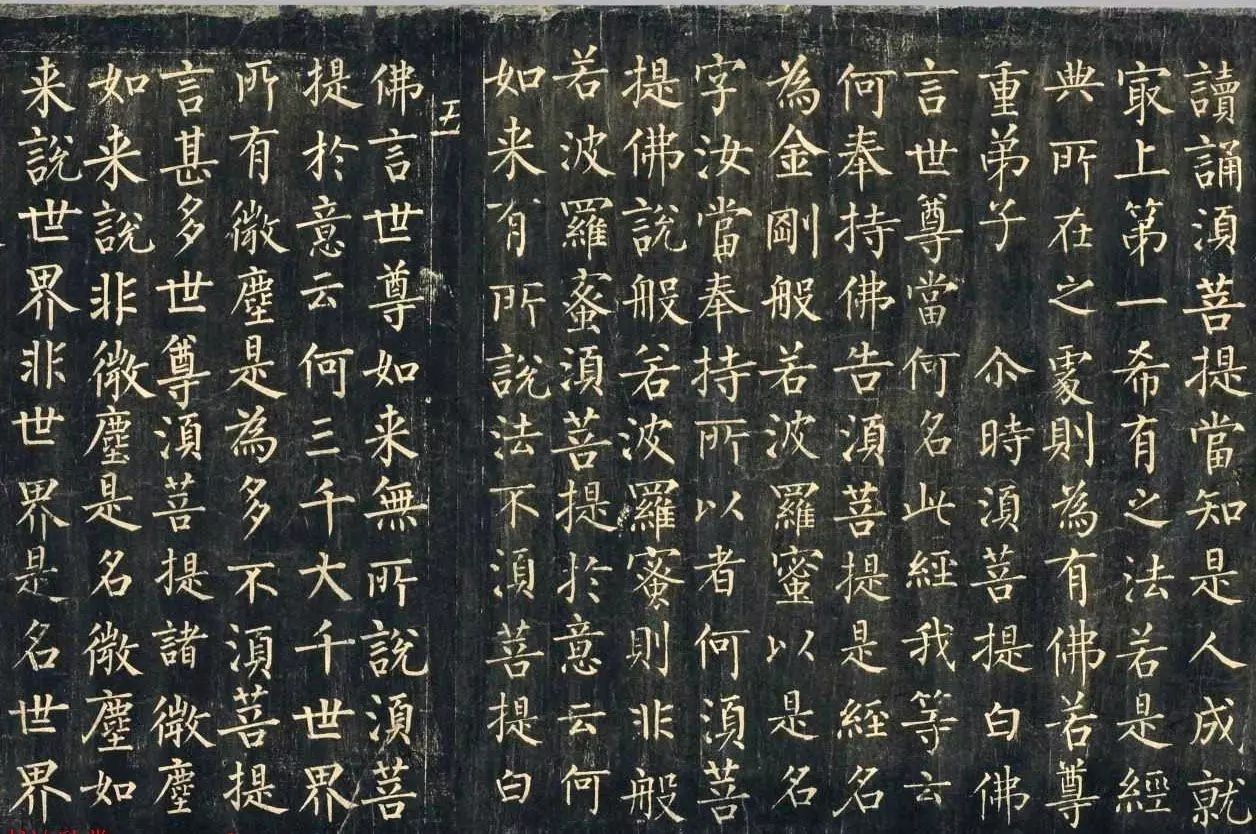 讀誦須菩提當知是人成就
㝡上第一希有之法若是經
典所在之處則為有佛若尊
重弟子 尒時須菩提白佛
言世尊當何名此經我等云
何奉持佛告須菩提是經名
為金剛般若波羅蜜以是名
字汝當奉持所以者何須菩
提佛說般若波羅蜜則非般
若波羅蜜須菩提於意云何
如来有所說法不須菩提白
五
佛言世尊如来無所說須菩
提於意云何三千大千世界
所有微塵是為多不須菩提
言甚多世尊須菩提諸微塵
如来說非微塵是名微塵如
来說世界非世界是名世界